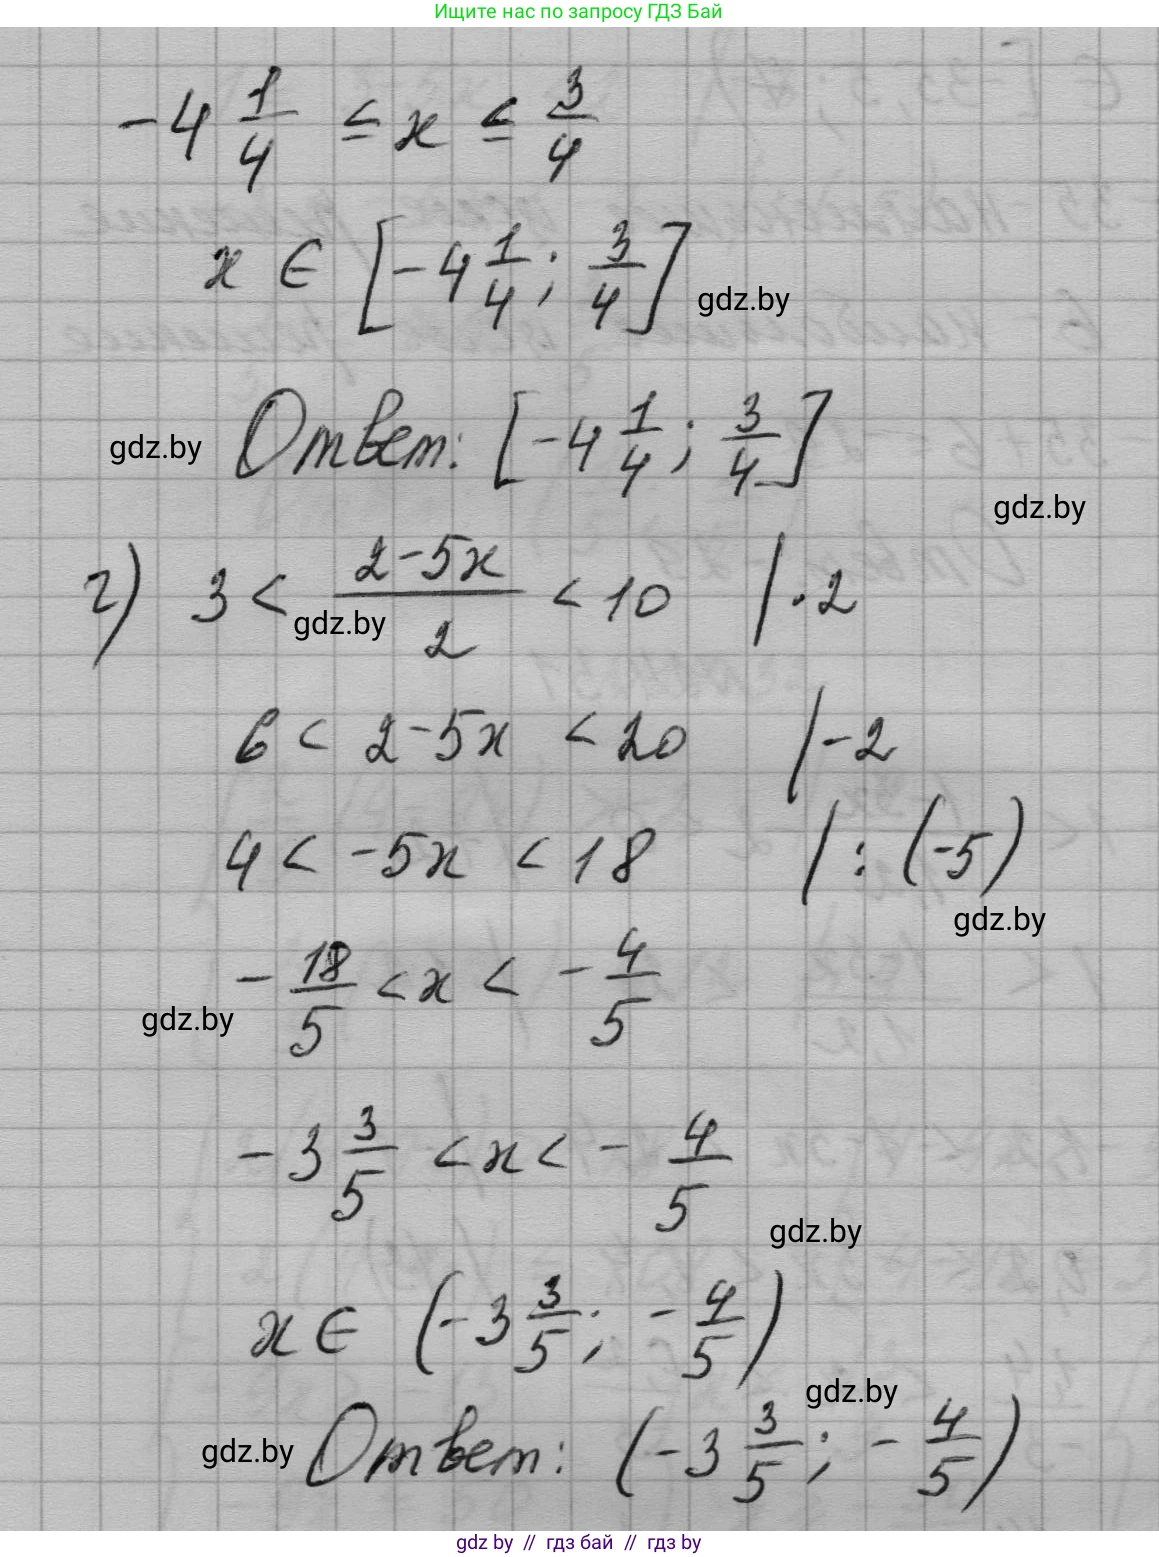 Ищите нас по запросу ГДЗ Бай
-4 1/4 ≤ x ≤ 3/4
x ∈ [-4 1/4; 3/4]
gdz.by
Ответ: [-4 1/4; 3/4]
gdz.by
gdz.by
г) 3 < (2-5x)/2 < 10 | · 2
gdz.by
6 < 2-5x < 20 | -2
4 < -5x < 18 | : (-5)
gdz.by
-18/5 < x < -4/5
gdz.by
-3 3/5 < x < -4/5
gdz.by
x ∈ (-3 3/5; -4/5)
gdz.by
Ответ: (-3 3/5; -4/5)
gdz.by
gdz by // гдз бай // гдз by